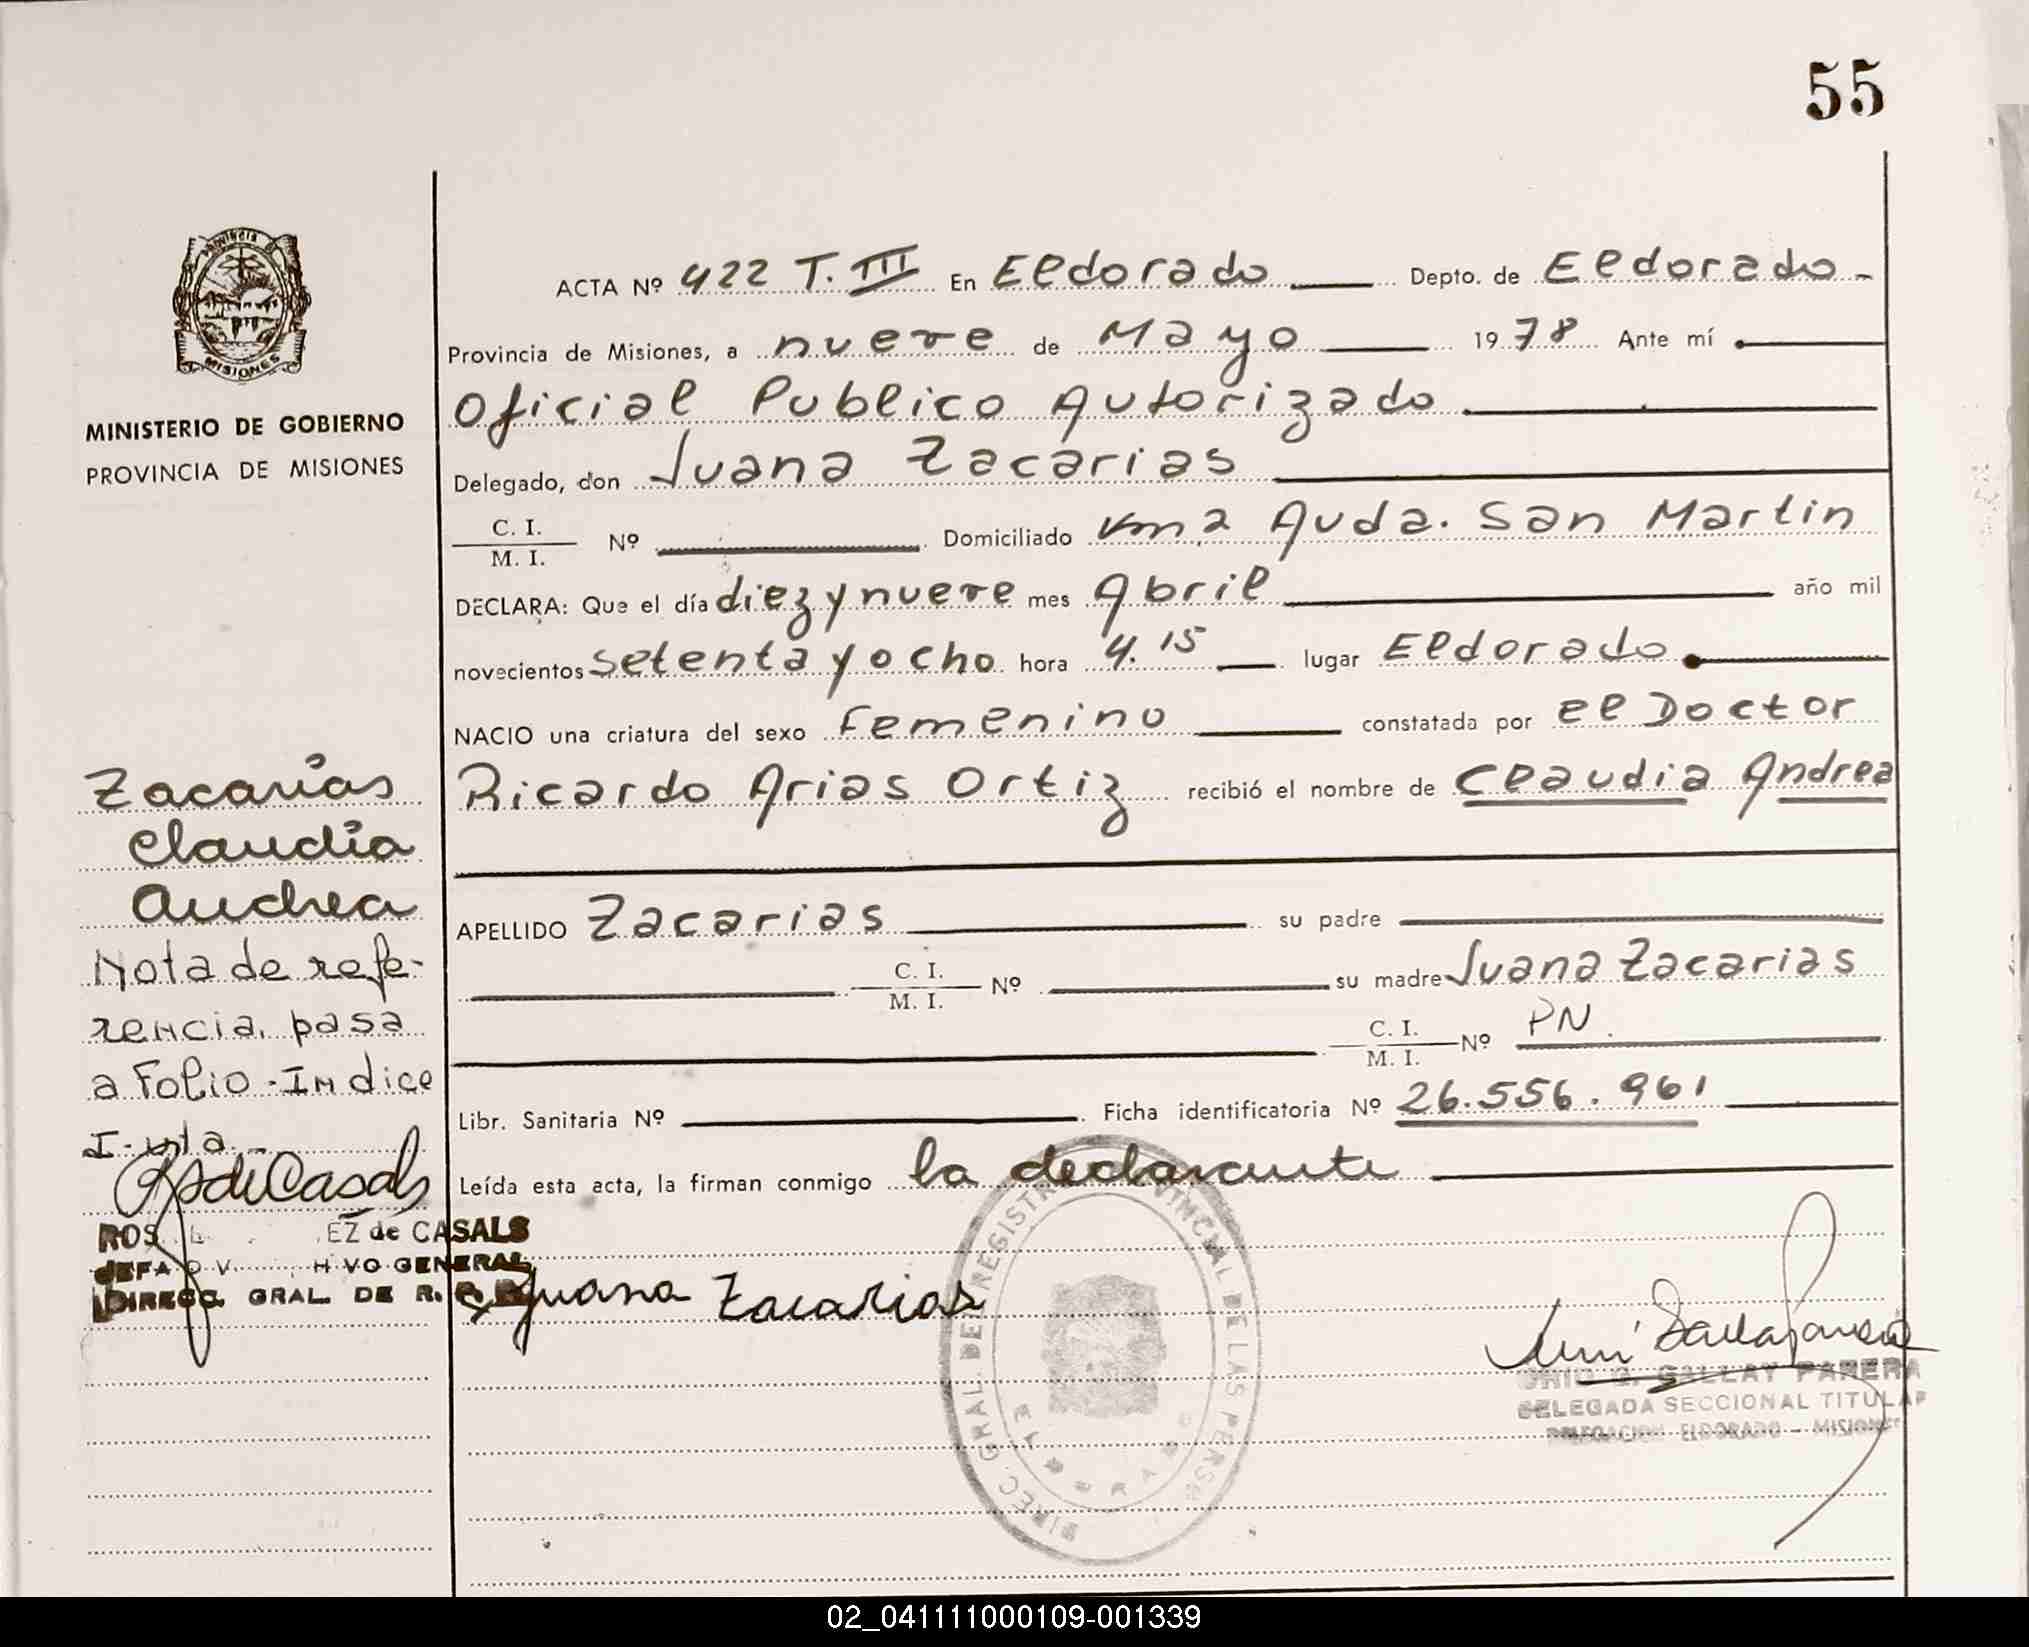 55
ACTA Nº 422 T. III En Eldorado Depto. de Eldorado -
Provincia de Misiones, a nueve de Mayo 1978 Ante mí
Oficial Publico Autorizado
Delegado, don Juana Zacarias
C. I.
M. I. Nº Domiciliado Km 2 Avda. San Martin
DECLARA: Que el día diez y nueve mes Abril año mil
novecientos setenta y ocho hora 4.15 lugar Eldorado
NACIO una criatura del sexo Femenino constatada por el Doctor
Ricardo Arias Ortiz recibió el nombre de Claudia Andrea
APELLIDO Zacarias su padre
C. I.
M. I. Nº su madre Juana Zacarias
C. I.
M. I. Nº PN.
Libr. Sanitaria Nº Ficha identificatoria Nº 26.556.961
Leída esta acta, la firman conmigo la declarante
Juana Zacarias
GALLAY PARERA
DELEGADA SECCIONAL TITULAR
DELEGACION ELDORADO - MISIONES
DIREC. GRAL. DEL REGISTRO PROVINCIAL DE LAS PERS
ELDORADO
Provincia de
MISIONES
MINISTERIO DE GOBIERNO
PROVINCIA DE MISIONES
Zacarías
Claudia
Andrea
Nota de refe-
rencia, pasa
a Folio-Indice
EZ de CASALS
VO GENERAL
DIRECC. GRAL. DE R.
02_041111000109-001339